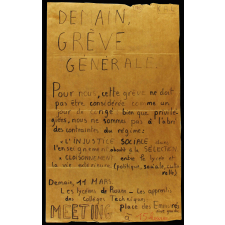 DEMAIN,
GRÈVE
GÉNÉRALE
Pour nous, cette grève ne doit
pas être considérée comme un
jour de congé : bien que privilé-
giés, nous ne sommes pas à l'abri
des contraintes du régime :
L'INJUSTICE SOCIALE dans
l'enseignement aboutit à la SÉLECTION
CLOISONNEMENT entre le lycée et
la vie extérieure (politique, sociale,
Demain, 11 MAI,
Les lycéens de Rouen - Les apprentis
des Collèges Techniques
MEETING place des Emmurées